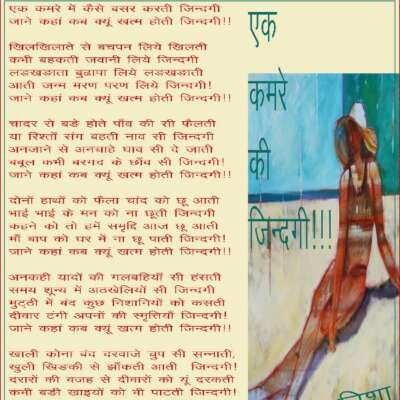 एक कमरे में कैसे बसर करती जिन्दगी
जाने कहां कब क्यूं खत्म होती जिन्दगी!!
खिलखिलाते से बचपन लिये खिलती
कभी बहकती जवानी लिये जिन्दगी
लडखडाता बुढापा लिये लडखडाती
आती जन्म मरण परण लिये जिन्दगी!
जाने कहां कब क्यूं खत्म होती जिन्दगी!!
चादर से बडे होते पाँव की सी फैलती
या रिश्तों संग बहती नाव सी जिन्दगी
अनजाने से अनचाहे घाव सी दे जाती
बबूल कभी बरगद के छाँव सी जिन्दगी!
जाने कहां कब क्यूं खत्म होती जिन्दगी!!
दोनों हाथों को फैला चांद को छू आती
भाई भाई के मन को ना छूती जिन्दगी
कहने को तो हमें समृद्दि आज छू आती
माँ बाप को घर में ना छू पाती जिन्दगी!
जाने कहां कब क्यूं खत्म होती जिन्दगी!!
अनकही यादों की गलबहियाँ सी हंसती
समय शून्य में अठखेलियों सी जिन्दगी
मुट्ठी में बंद कुछ निशानियों को कसती
दीवार टंगी अपनों की स्मृत्तियाँ जिन्दगी!
जाने कहां कब क्यूं खत्म होती जिन्दगी!!
खाली कोना बंद दरवाजे चुप सी सन्नाती,
खुली खिडकी से झाँकती आती जिन्दगी!
दरारों की वजह से दीवारों को यूं दरकती
कभी बडी खाइयों को भी पाटती जिन्दगी!
एक
कमरे
की
जिन्दगी!!!